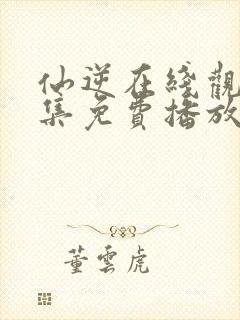 仙逆在綫觀
集免費播放
董雲虎